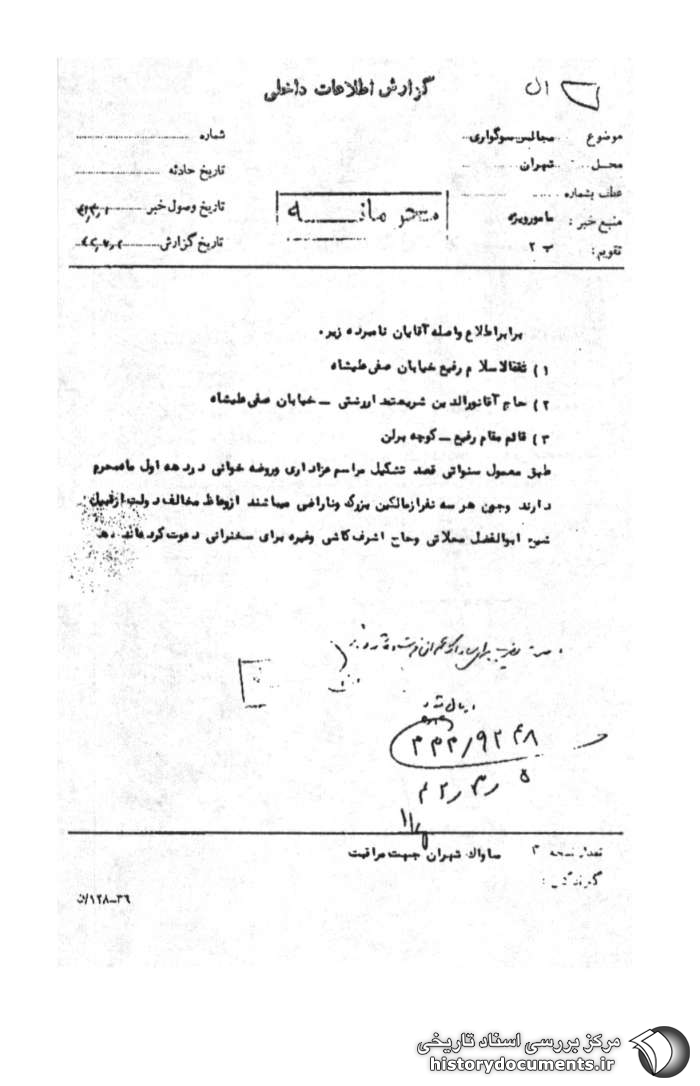 گزارش اطلاعات داخلی
موضوع مجالس سوگواری
محل تهران
عطف بشماره
منبع خبر : مامور ویژه
تقویم : ب ۲
شماره
تاریخ حادثه
تاریخ وصول خبر
تاریخ گزارش
محرمانه
برابر اطلاع واصله آقایان نامبرده زیر .
۱) ثقةالاسلام رفیع خیابان صفی علیشاه
۲) حاج آقا نورالدین شریعتمدار رشتی – خیابان صفی علیشاه
۳) قائم مقام رفیع – کوچه برلن
طبق معمول سنواتی قصد تشکیل مراسم عزاداری وروضه خوانی در دهه اول ماه محرم
دارند وچون هر سه نفر از مالکین بزرگ وناراضی میباشند از وعاظ مخالف دولت از قبیل
شیخ ابوالفضل محلاتی وحاج اشرف کاشی وغیره برای سخنرانی دعوت کرده اند
ارسال شد
۳۳۳/۹۲۴۸
تعداد نسخه ۳ ساواک تهران جهت مراقبت
گیرندگان :
۳۶–۱۲۸/ن
مرکز بررسی اسناد تاریخی
historydocuments.ir